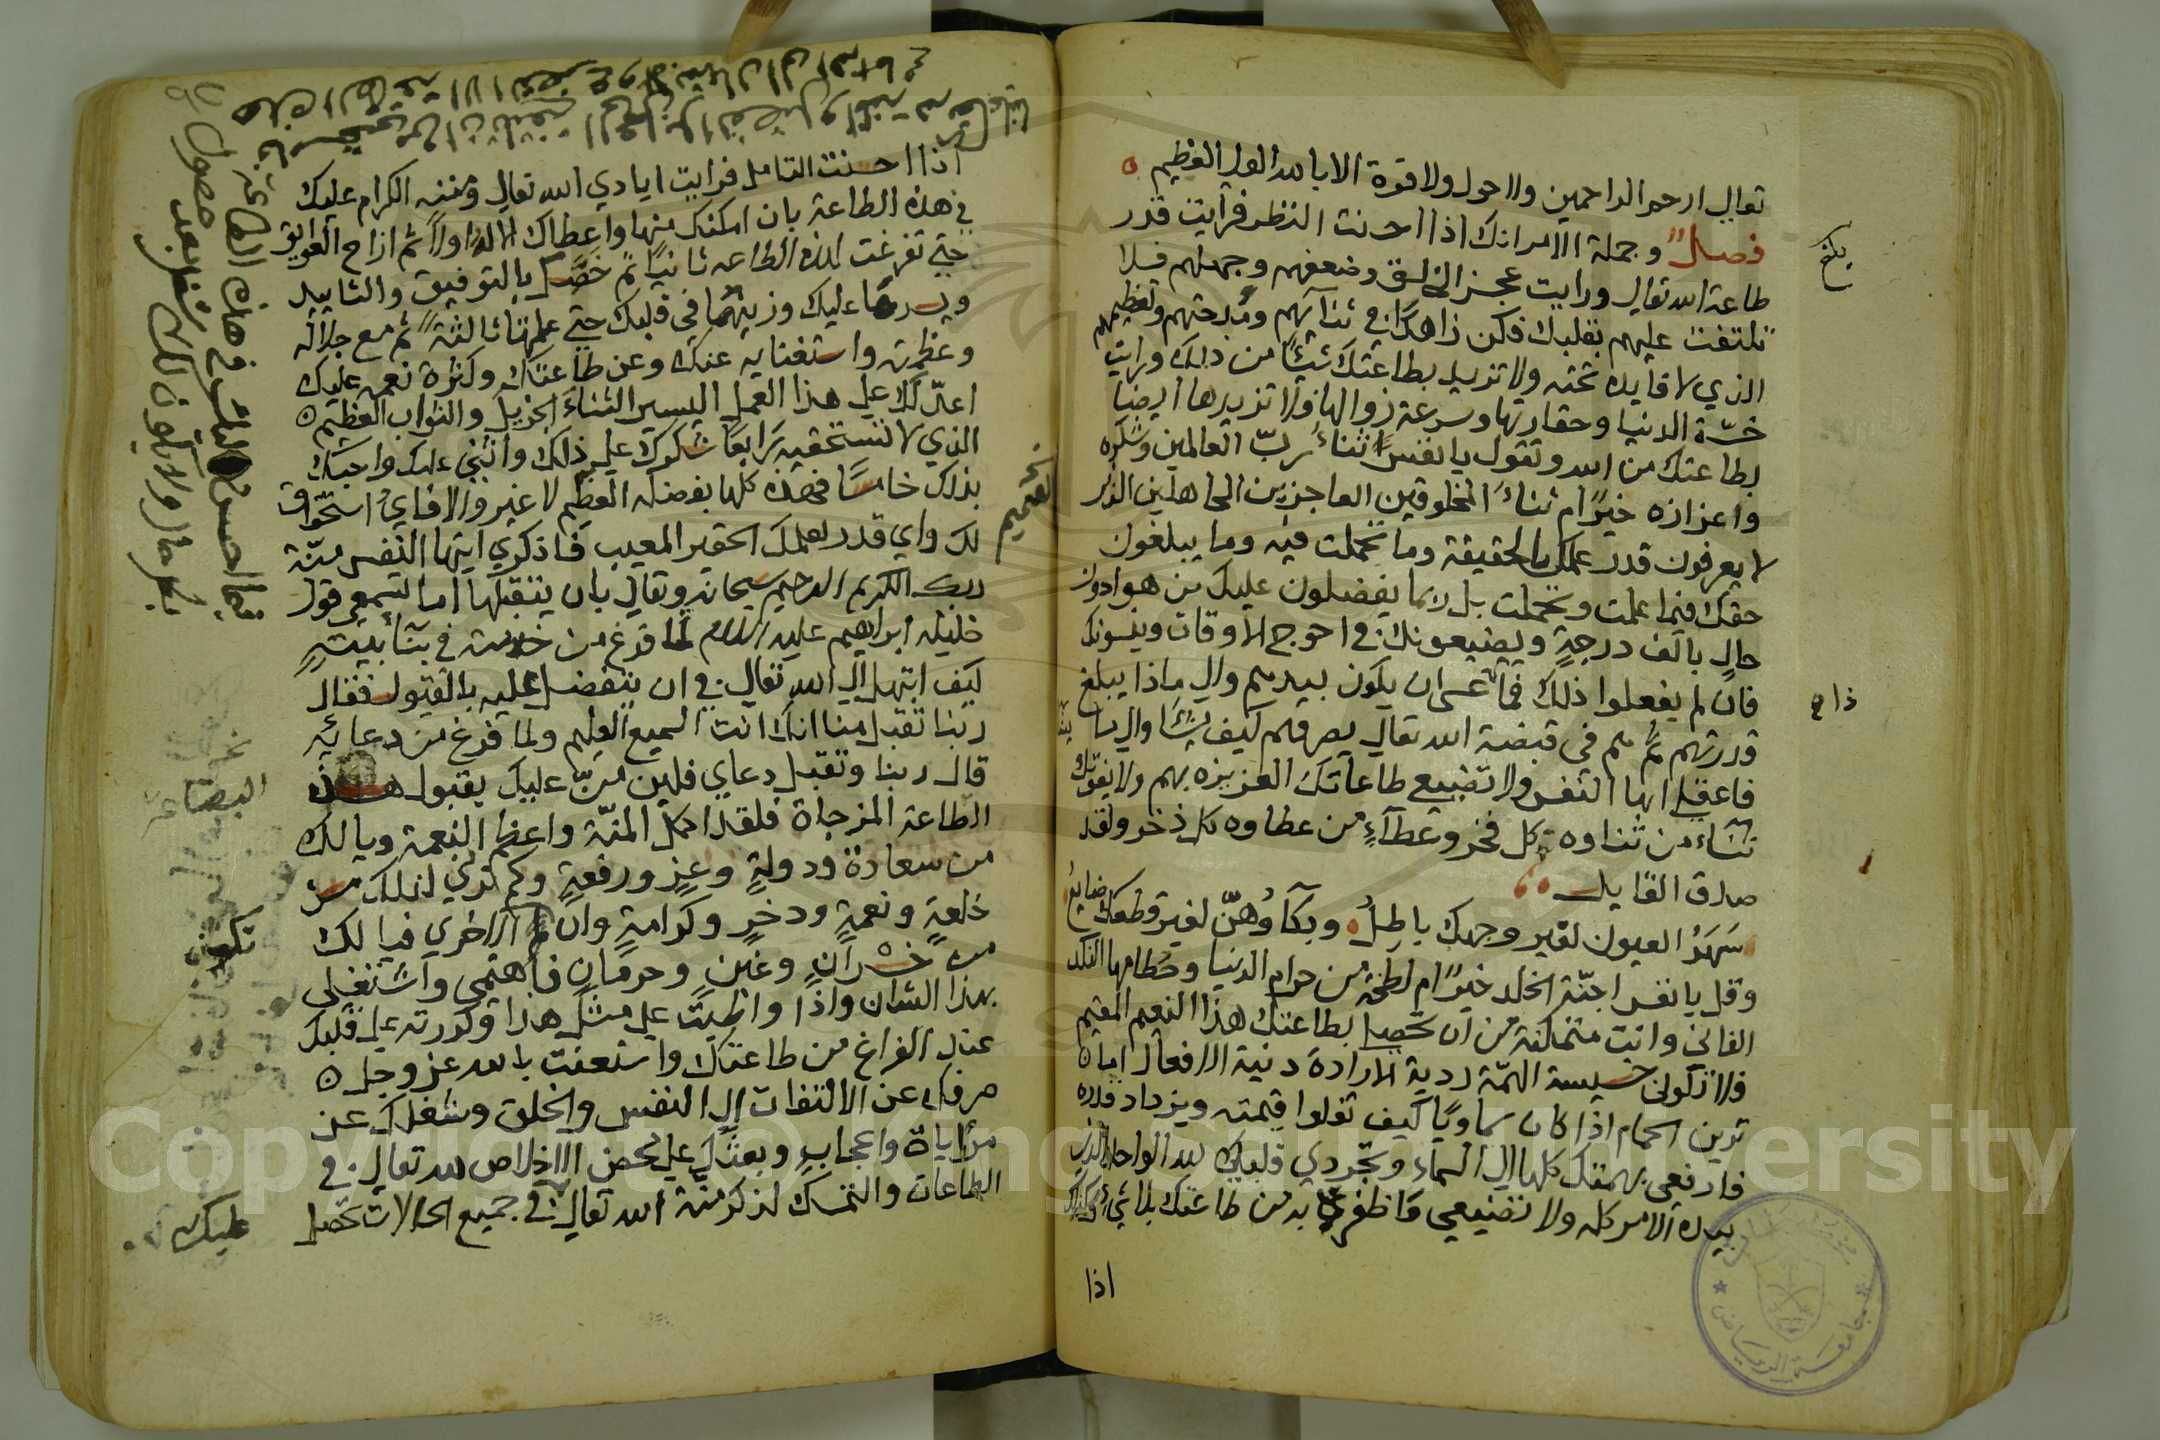 تعالي ارحم الراحمين ولا حول ولا قوة الا بالله العلي العظيم
فصل وجملة الامر انك اذا احسنت النظر فرأيت قدر
طاعة الله تعالي ورايت عجز الخلق وضعفهم وجهلهم فلا
تلتفت عليهم بقلبك فكن زاهدًا في ثنائهم ومدحتهم وتعظيمهم
الذي لا فايدة تحته ولا تريد بطاعتك شيئًا من ذلك ورايت
خسّة الدنيا وحقارتها وسرعة زوالها فلا تريدها ايضا
بطاعتك من الله وتقول يا نفس اثناءُ ربّ العالمين وشكره
واعزازه خيرًا م ثناءُ المخلوقين العاجزين الجاهلين الذين
لا يعرفون قدر عملك بالحقيقة وما تحملت فيه وما يبلغون
حقك فيما عملت وتحملت بل ربما يفضلون عليك من هو ادون
حالٍ بالف درجةٍ ويضيعونك في احوج الاوقات وينسونك
فان لم يفعلوا ذلك فما عسي ان يكون بيدهم والي ماذا يبلغ
قدرتهم ثمّ هم في قبضة الله تعالي يصرفهم كيف يشَا والي ما
فاعقلي ايها النفس ولا تضيعي طاعاتك العزيزه بهم ولا يفوتك
ثناء من ثناوه كل فخر وعطآءٍ من عطاوه كل ذخر ولقد
صدق القايل
سَهَرُ العيون لغير وجهك باطلُ وبكاؤهنّ لغير قطعك ضايعُ
وقل يا نفس اجنّة الخلد خيرًا م لطخة من حرام الدنيا وحُطامها النكد
الفاني وانت متمكنة من ان تحصل بطاعتك هذا النعيم المقيم
فلا تكوني خسيسة الهمّة ردية الارادة دنية الافعال اما
ترين الحمام اذا كان سماويًا كيف تغلوا قيمته ويزداد قدره
فارفعي همتك كلها الي السماء وتجردي قلبك لله الواحد الذي
بيده الامر كله ولا تضيعي ما ظفرت به من طاعتك بلا شيءٍ وكذلك
اذا
بلغ
اذا احسنت التامل فرايت ايادي الله تعالي ومننه الكرام عليك
في هذه الطاعة بان امكنك منها واعطاك الالة اولاً ثم ازاح العوايق
حتي تفرغت لهذه الطاعه ثانيًا ثم خصّك بالتوفيق والتاييد
ويسرها عليك وزينها في قلبك حتي عملتها ثالثةً ثم مع جلاله
وعظمته واستغنايه عنك وعن طاعتك وكثرة نعمه عليك
اعدّ لك علي هذا العمل اليسير الثناءَ الجزيل والثواب العظيم
الذي لا تستحقيه رابعًا شكورك علي ذلك واثني عليك واحبّك
بذلك خامسًا فهذه كلها بفضله العظيم لا غير والا فاي استحقاق
لك واي قدر لعملك الحقير المعيب فاذكري ايتها النفس منّة
ربك الكريم الرحيم سبحانه وتعالي بان يتقبلها اما تسمعي قول
خليله ابراهيم عليه السلام لما فرغ من خدمته في بنآ بيته
كيف ابتهل الي الله تعالي في ان يتفضل عليه بالقبول فقال
ربنا تقبل منا انك انت السميع العليم ولما فرغ من دعائه
قال ربنا وتقبل دعاي فلئن مَنّ عليك بقبول هذه
الطاعة المزجاة فلقد اكمل المنّة واعظم النعمة ويا لك
من سعادة ودولةٍ وعزٍ ورفعةٍ وكم تري لذلك من
خلعةٍ ونعمةٍ وذخرٍ وكرامةٍ وان الاخري فيا لك
من خسرانٍ وغبنٍ وحرمانٍ فاهتمي واشتغلي
بهذا الشان واذا واظبت علي مثل هذا وكررته علي قلبك
عند الفراغ من طاعتك واستعنت بالله عز وجل
صرفك عن الالتفات الي النفس والخلق وشغلك عن
مراياة واعجابٍ وبعثك علي محض الاخلاص لله تعالي في
الطاعات والتمسك لذكر منّة الله تعالي في جميع الحالات تحصل
البضاعة
تكن
عليك
Copyright © King Saud University